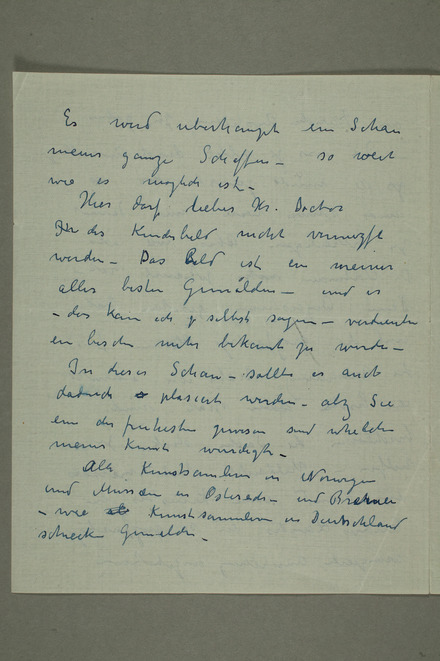 Es wird uberhaupt ein Schau
meines ganze Schaffen – so weit
wie es moglich ist –
Hier darf lieber Hr. Doctor
das Kinderbild nicht vermisst
werden – Das Bild ist ein meiner
aller besten Gemälden – und es
– das kan ich ja selbst sagen – verdiente
ein beschen mehr bekannt zu werde –
In dieser Schau – sollte es auch
dadurch plasiert werden – als Sie
ein der fruhesten gewesen sind welche
meine Kunst wurdigte –
Alle Kunstsamlern in Norwegen
und Museen in und Bremen
– wie Kunstsammlern in Deutschland
schicken Gemälden –